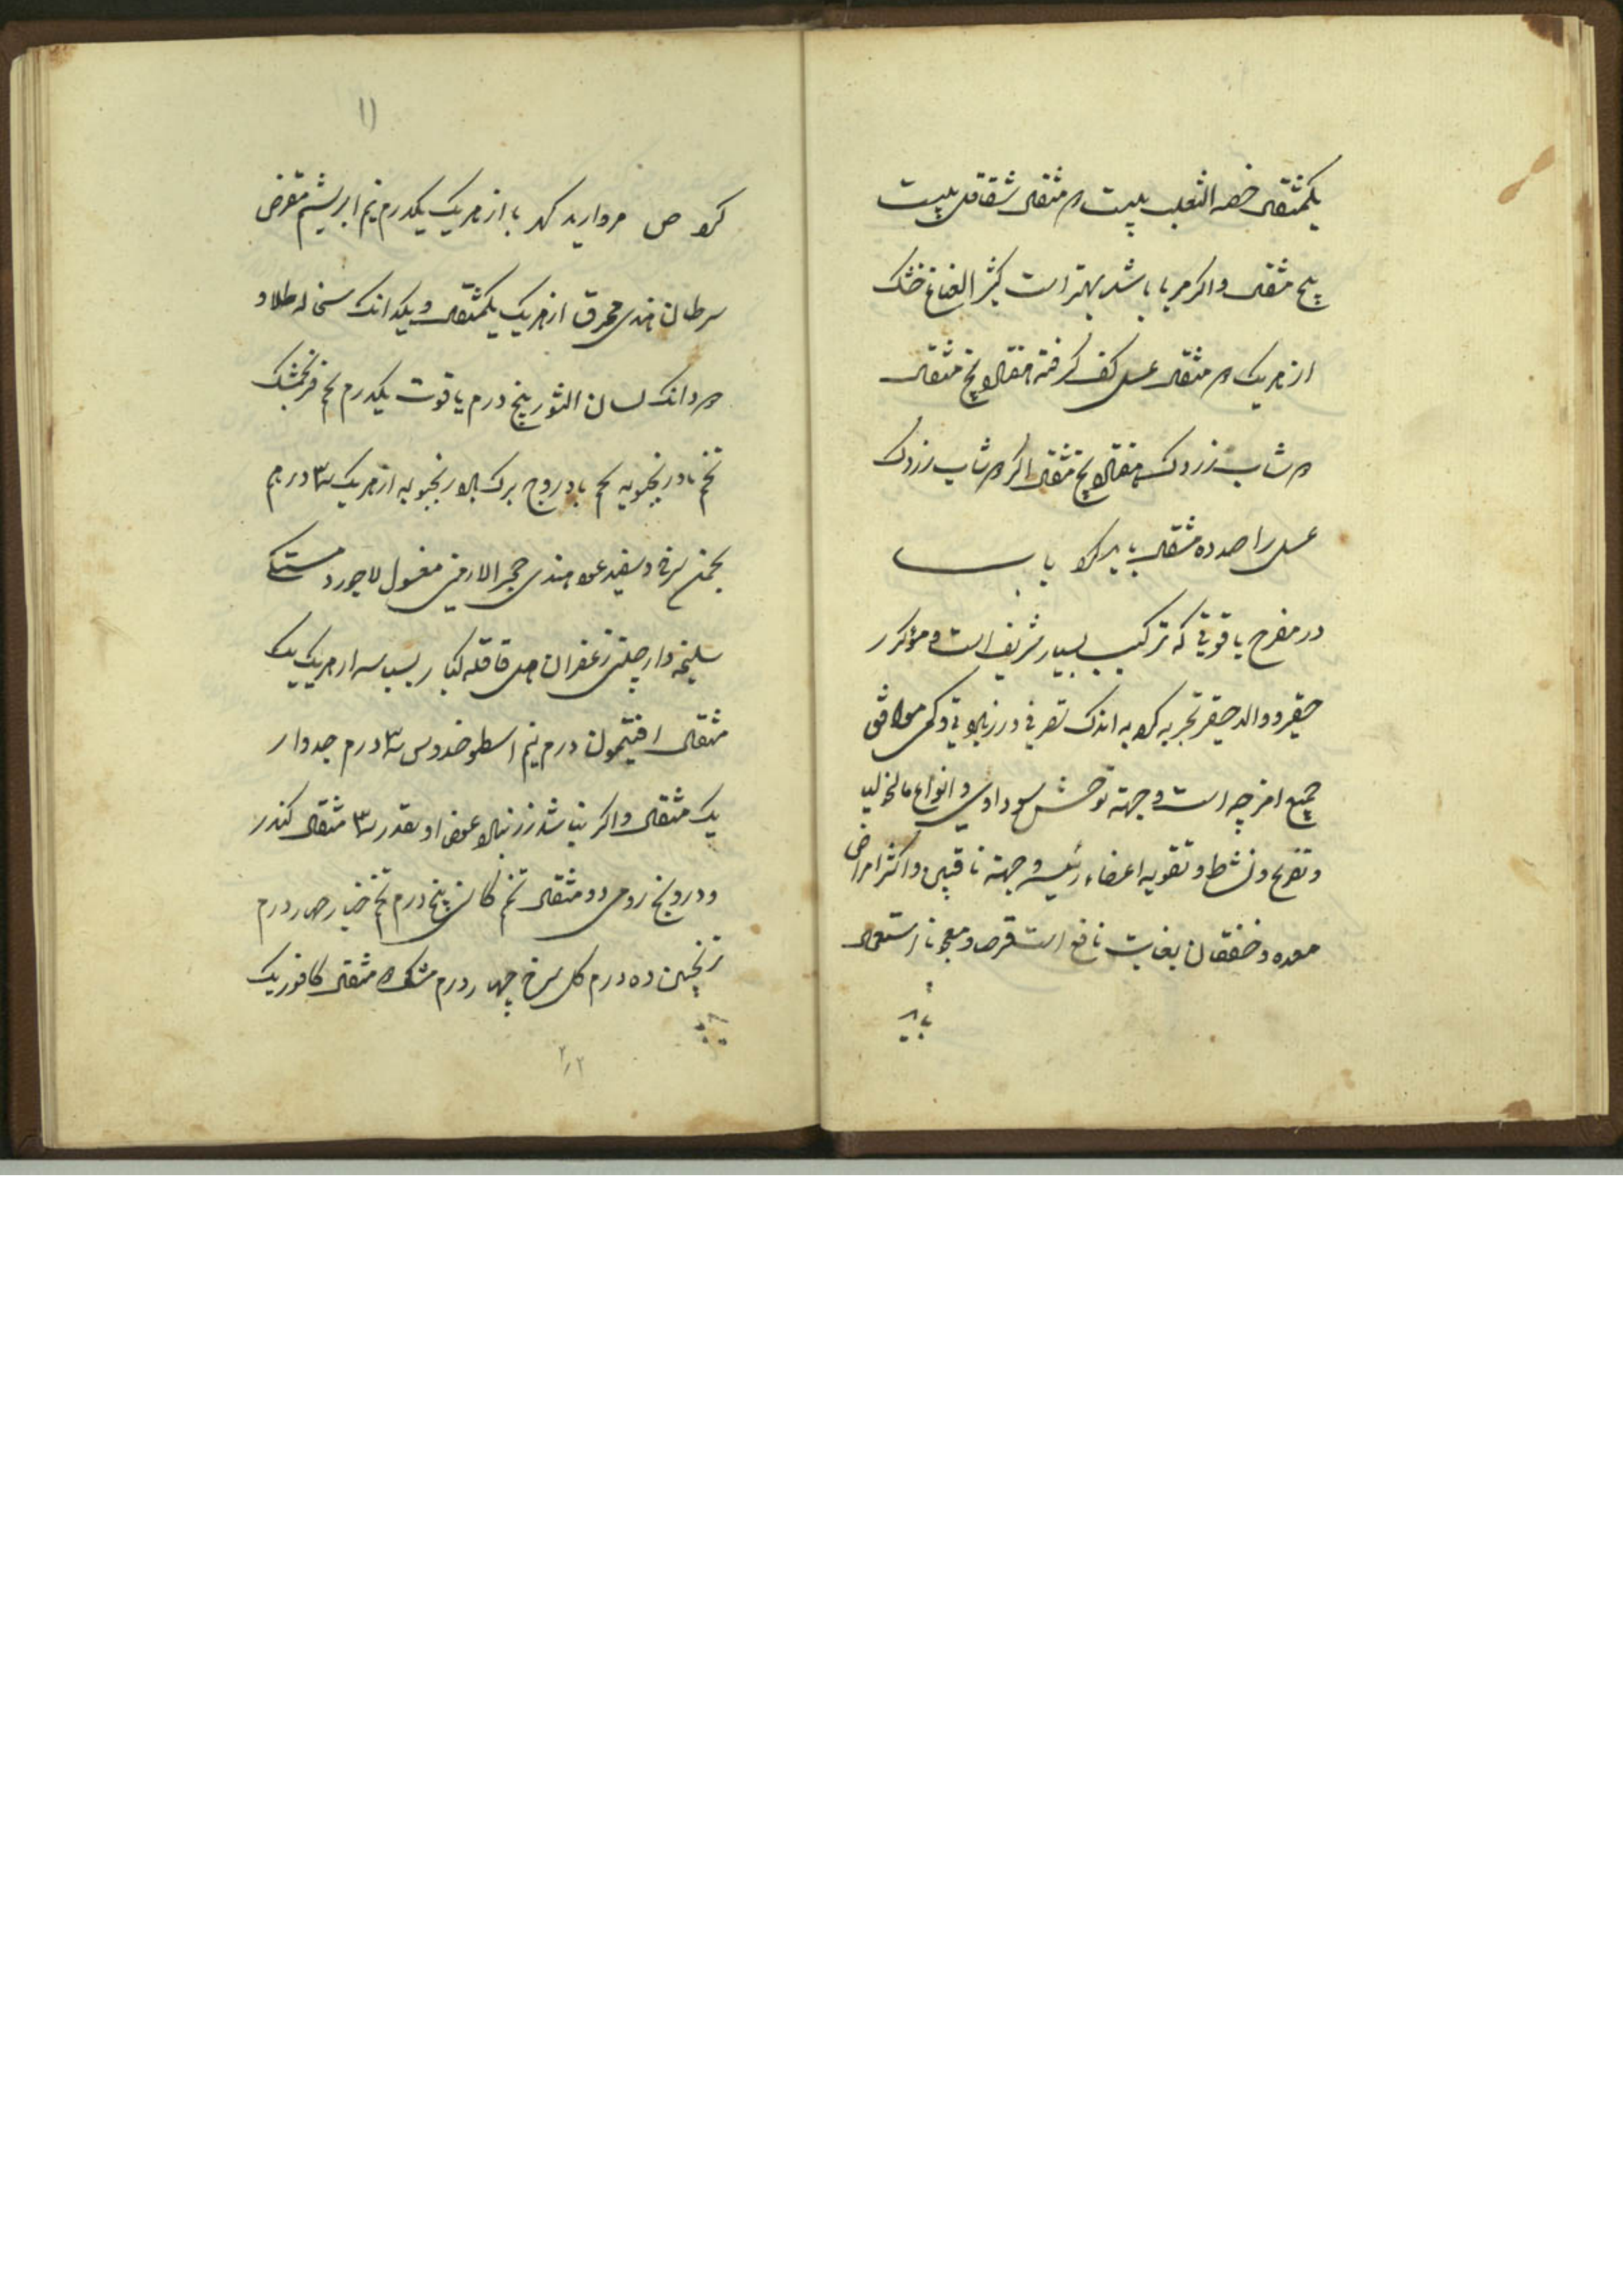 یکمثقال خصیه الثعلب بیست و مثقال شقاقل بیست
پنج مثقال و اکر مربا باشد بهتر است کثیر النعناع خشک
از هریک مثقال عسل کف کرفته پنج مثقال
زردک پنج مثقال اکر زردک
عسل را صد ده مثقال باید کرد باب
در مفرح یاقوتی که ترکیب بسیار شریف است و مؤکرر
حقیر و والد حقیر تجربه کرده به اندک تصرفی در زرنباد و تی و کمی موافق
جمیع امزجه است و جهة توحش سوداوی و انواع مالیخولیا
و تفریح و نشط و تقویه اعضاء رئیسه و جهة ناقهین و اکثر امراض
معده و خفقان بغایت نافع است قرص و معجونا استعمال
باید
۱۱
کرد ص مروارید کهربا از هریک یکدرم نیم ابریشم مقرض
سرطان هندی محرق از هریک یکمثقال و یکدانک سخاله طلا دو
دانک لسان الثور پنج درم یاقوت یکدرم تخم فرنجمشک
تخم بادرنجبویه تخم بادروج برک بادرنجبویه از هریک ۳ درم
بهمن سرخ و سفید عود هندی حجر الارمنی مغسول لاجورد مستکی
سلیخه دارچینی زعفران هل قاقله کبار بسباسه از هریک یک
مثقال افتیمون درم نیم اسطوخودوس ۳ درم جدوار
یک مثقال و اکر نباشد زرنباد عوض او بقدر ۳ مثقال کندر
و درونج رومی دو مثقال تخم کاسنی پنج درم تخم خیار چهار درم
ترنجبین ده درم کل سرخ چهار درم مشک مثقال کافور یک
۲٫۲